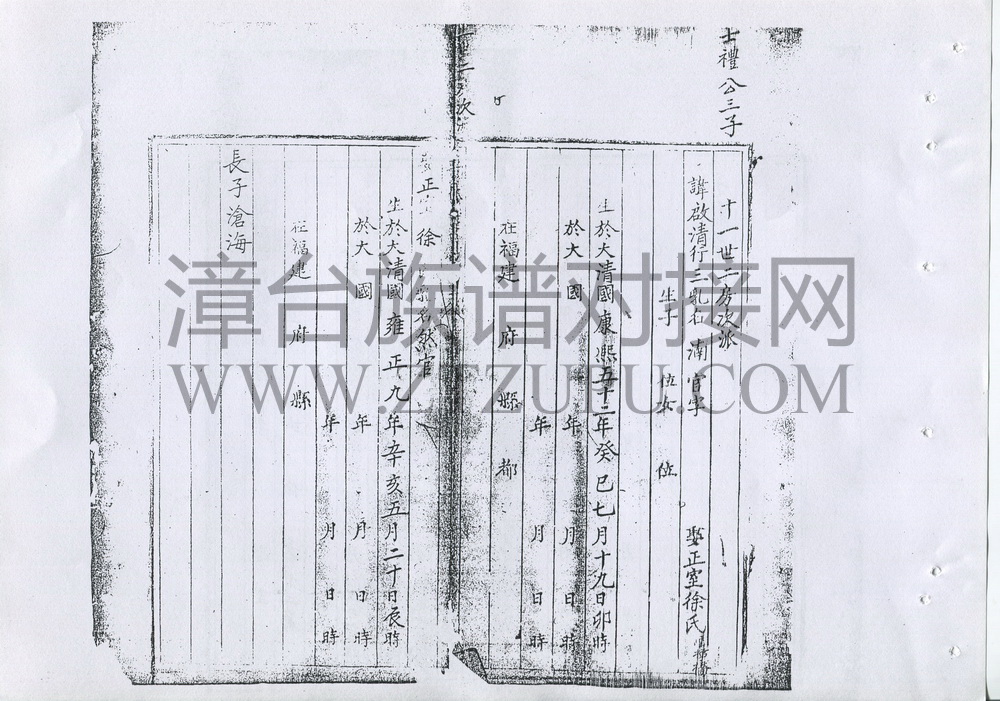 士禮公三子
十一世二房次派
諱啟清行三乳名滿官字 娶正室徐氏
生子 位女 位
生於大清國康熙五十二年癸巳七月十九日卯時
於大國 年 月 日時
在福建 府 縣 都 年 月 日時
正室徐 乳名然官
生於大清國雍正九年辛亥五月二十日辰時
於大國 年 月 日時
在福建 府 縣 年 月 日時
長子滄海
漳台族谱对接网
WWW.ZTZUPU.COM